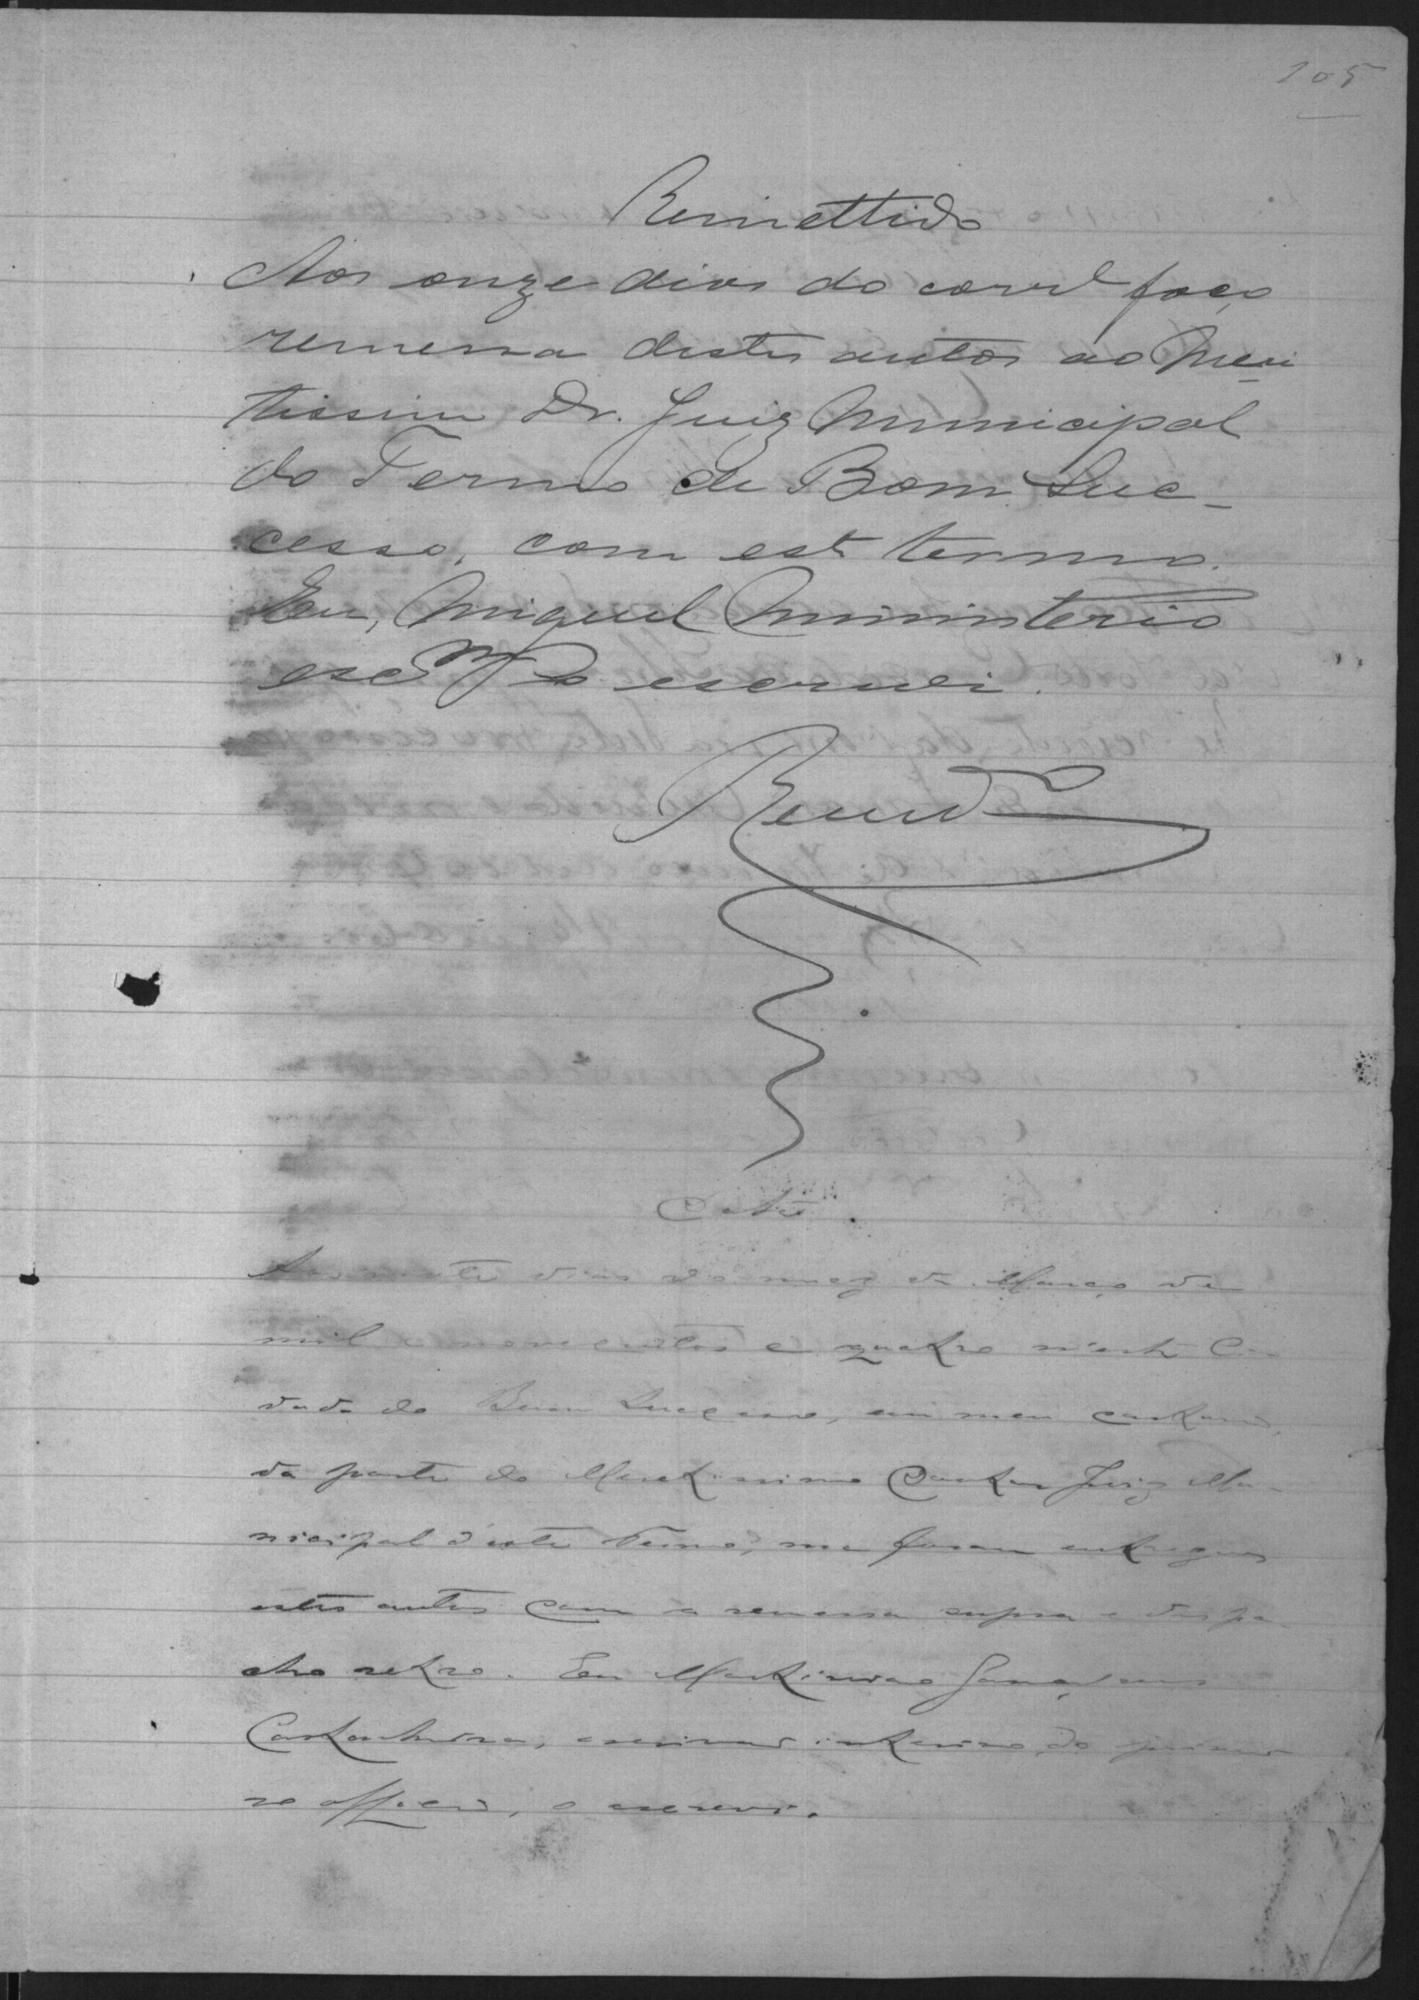 105
Remettido
Aos onze dias do corr.e faço
remessa destes autos ao Meri
tissimo Dr. Juiz Municipal
do Termo de Bom Suc-
cesso, com este termo.
Eu, Miguel Ministerio
escrm o escrevi.
Remd
Data.
Aos dias do mez de Março de
mil e novecentos e quatro n'esta Ci-
dade do Bom Successo, em meu cartorio,
da parte do Meretissimo Doutor Juiz Mu-
nicipal d'este Termo, me foram entregues
estes autos com a remessa supra e despa-
cho retro. Eu Martiniano
Castanheira, escrivão interino do primei
ro officio, o escrevi.